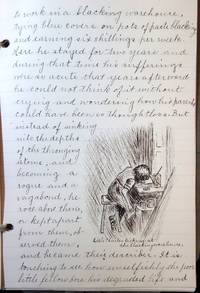 to work in a blacking warehouse,
tying blue covers on pots of paste blacking
and earning six shillings per week.
Here he stayed for two years and
during that time his sufferings
were so acute that years afterward
he could not think of it without
crying and wondering how his parents
could have been so thoughtless. But
instead of sinking
into the depths
of the thronging
stome, and
becoming a
rogue and a
vagabond, he
rose above them,
or kept apart
from them, ob-
served them,
and became their describer. It is
touching to see how unselfishly the poor
little fellow bore his degraded life and
Little Charles Dickens at
the blacking warehouse.